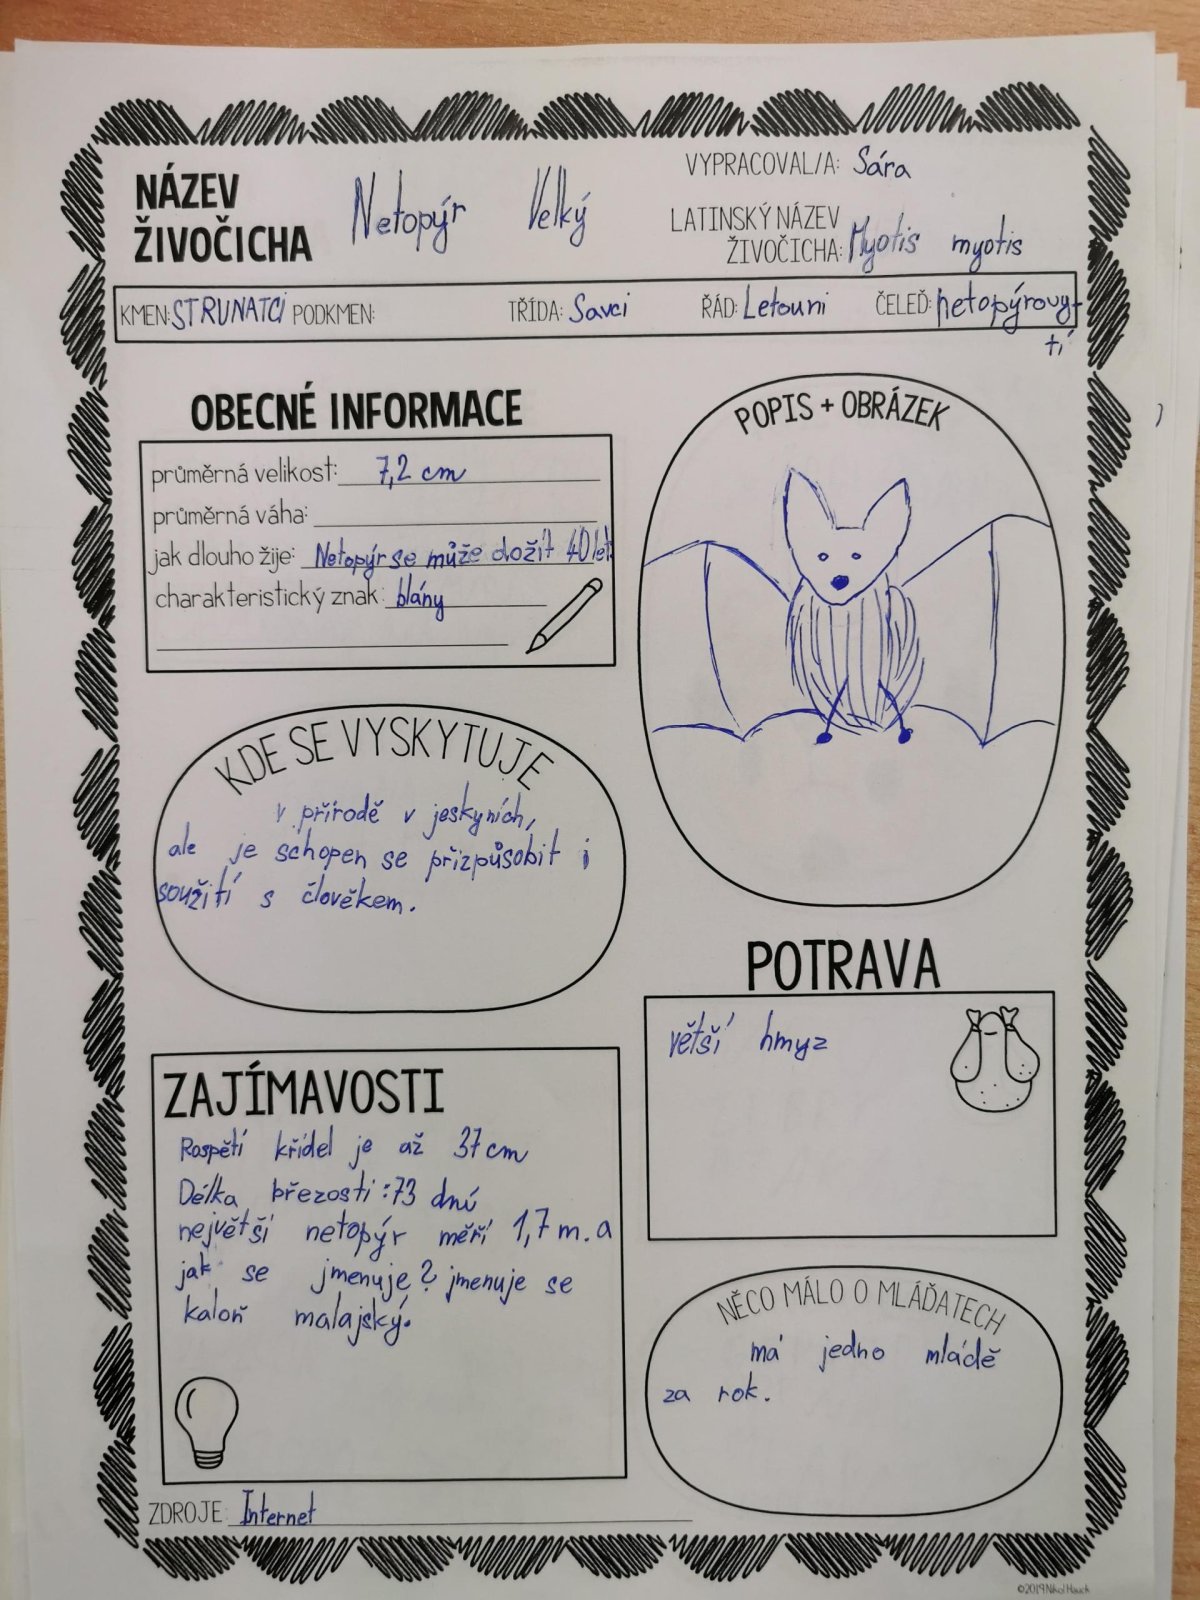 NÁZEV
ŽIVOČICHA
Netopýr Velký
VYPRACOVAL/A: Sára
LATINSKÝ NÁZEV
ŽIVOČICHA: Myotis myotis
KMEN: STRUNATCI PODKMEN: TŘÍDA: Savci ŘÁD: Letouni ČELEĎ: netopýrovy-
tí
OBECNÉ INFORMACE
průměrná velikost: 7,2 cm
průměrná váha:
jak dlouho žije: Netopýr se může dožít 40 let.
charakteristický znak: blány
POPIS + OBRÁZEK
KDE SE VYSKYTUJE
v přírodě v jeskyních,
ale je schopen se přizpůsobit i
soužití s člověkem.
POTRAVA
větší hmyz
ZAJÍMAVOSTI
Rospětí křídel je až 37 cm
Délka březosti: 73 dnů
největší netopýr měří 1,7 m. a
jak se jmenuje? jmenuje se
kaloň malajský.
NĚCO MÁLO O MLÁĎATECH
má jedno mládě
za rok.
ZDROJE: Internet
©2019 Nikol Hauck